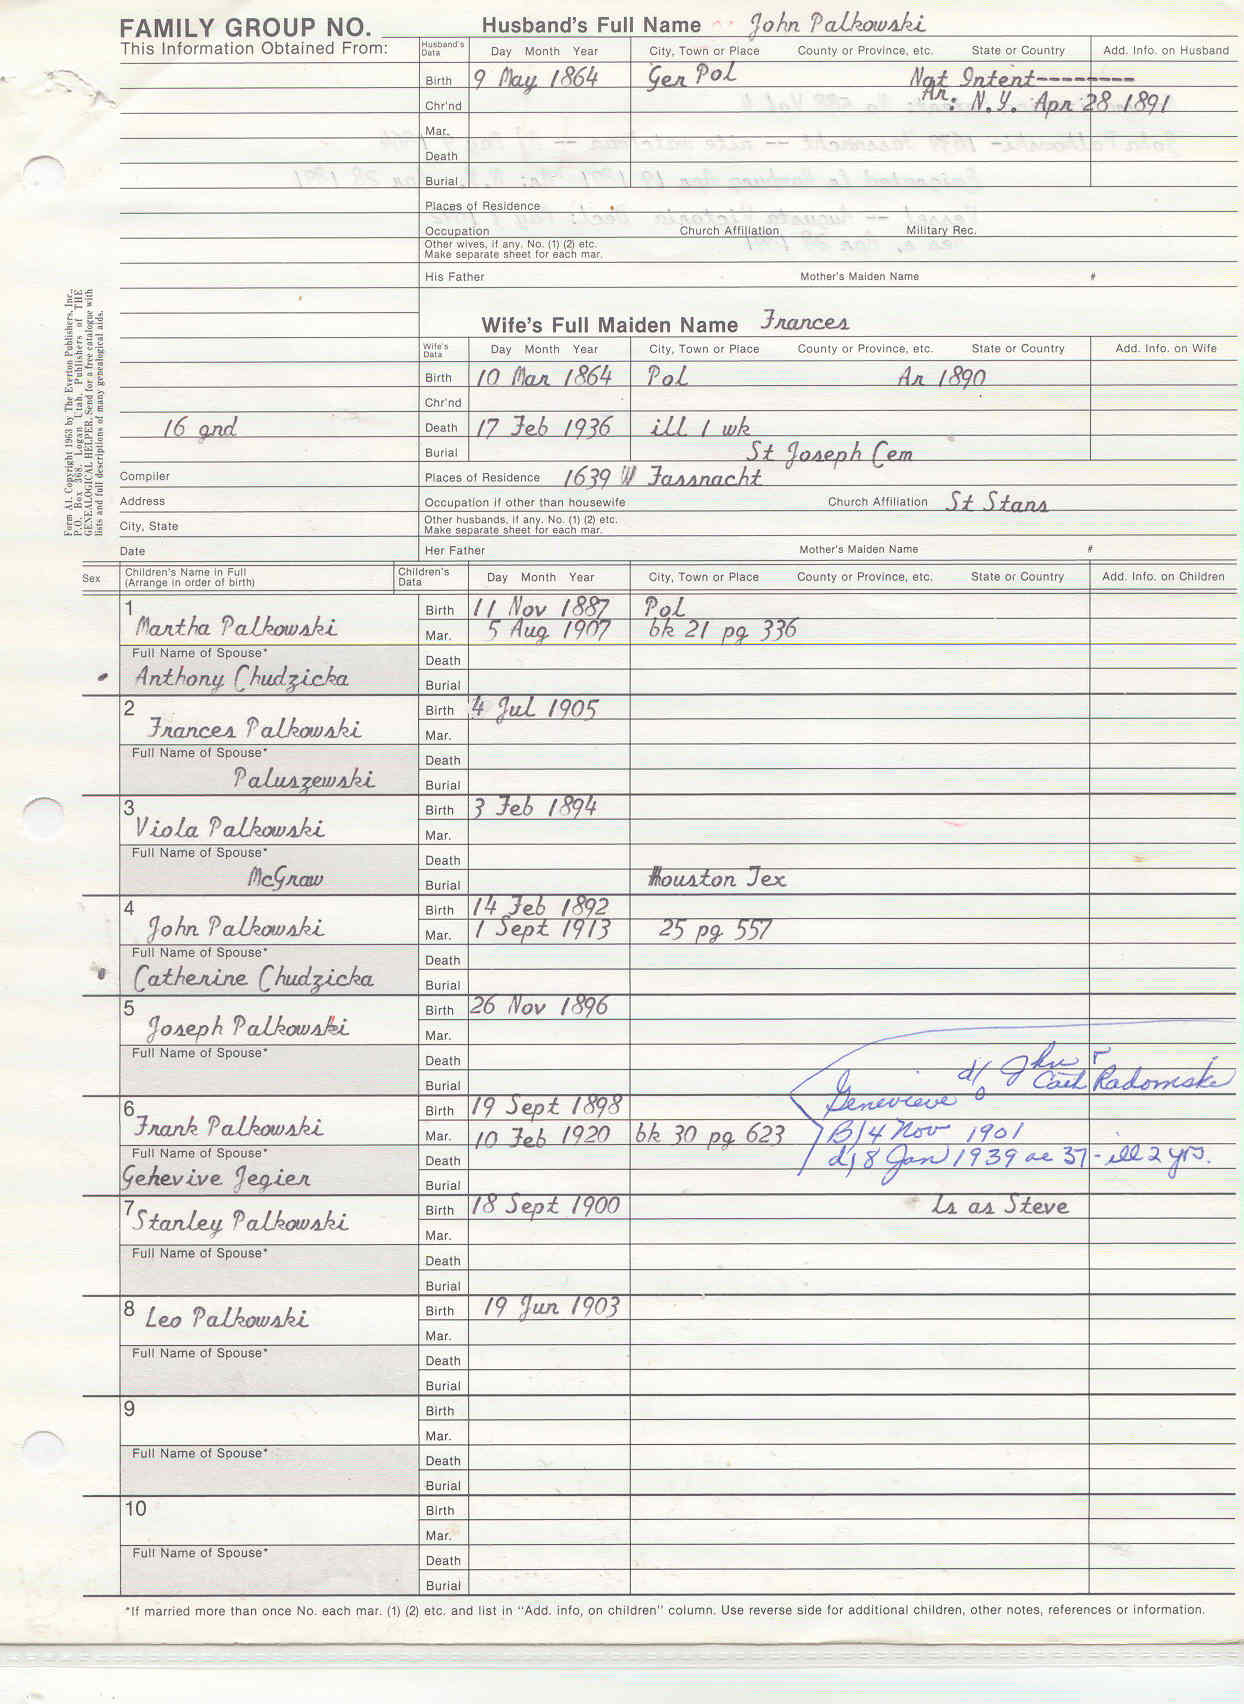 FAMILY GROUP NO.
Husband's Full Name John Palkowski
This Information Obtained From:
Husband's Data Day Month Year City, Town or Place County or Province, etc. State or Country Add. Info. on Husband
Birth 9 May 1864 Ger Pol Nat Intent--------
Chr'nd Ar: N.Y. Apr 28 1891
Mar.
Death
Burial
Places of Residence
Occupation Church Affiliation Military Rec.
Other wives, if any. No. (1) (2) etc.
Make separate sheet for each mar.
His Father Mother's Maiden Name #
Wife's Full Maiden Name Frances
Wife's Data Day Month Year City, Town or Place County or Province, etc. State or Country Add. Info. on Wife
Birth 10 Mar 1864 Pol Ar 1890
Chr'nd
16 gnd
Death 17 Feb 1936 ill 1 wk
Burial St Joseph Cem
Compiler
Places of Residence 1639 W Fassnacht
Address
Occupation if other than housewife Church Affiliation St Stans
City, State
Other husbands, if any. No. (1) (2) etc.
Make separate sheet for each mar.
Date
Her Father Mother's Maiden Name #
Form A1. Copyright 1963 by The Everton Publishers, Inc.,
P.O. Box 368. Logan Utah. Publishers of THE
GENEALOGICAL HELPER. Send for a free catalogue with
lists and full descriptions of many genealogical aids.
Sex Children's Name in Full
(Arrange in order of birth)
Children's Data Day Month Year City, Town or Place County or Province, etc. State or Country Add. Info. on Children
1 Birth 11 Nov 1887 Pol
Martha Palkowski Mar. 5 Aug 1907 bk 21 pg 336
Full Name of Spouse* Death
Anthony Chudzicka Burial
2 Birth 4 Jul 1905
Frances Palkowski Mar.
Full Name of Spouse* Death
Paluszewski Burial
3 Birth 3 Feb 1894
Viola Palkowski Mar.
Full Name of Spouse* Death
McGraw Burial Houston Tex
4 Birth 14 Feb 1892
John Palkowski Mar. 1 Sept 1913 25 pg 557
Full Name of Spouse* Death
Catherine Chudzicka Burial
5 Birth 26 Nov 1896
Joseph Palkowski Mar.
Full Name of Spouse* Death
Burial
d/o John r
Cath Radomski
Genevieve
6 Birth 19 Sept 1898
Frank Palkowski Mar. 10 Feb 1920 bk 30 pg 623 B/4 Nov 1901
Full Name of Spouse* Death d/8 Jan 1939 ae 37 - ill 2 yrs.
Genevive Jegier Burial
7 Birth 18 Sept 1900 Ls as Steve
Stanley Palkowski Mar.
Full Name of Spouse* Death
Burial
8 Birth 19 Jun 1903
Leo Palkowski Mar.
Full Name of Spouse* Death
Burial
9 Birth
Mar.
Full Name of Spouse* Death
Burial
10 Birth
Mar.
Full Name of Spouse* Death
Burial
*If married more than once No. each mar. (1) (2) etc. and list in "Add. info, on children" column. Use reverse side for additional children, other notes, references or information.